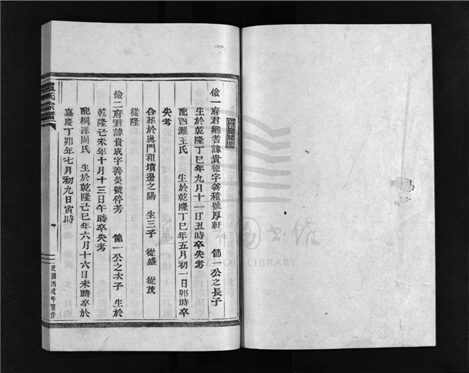 儉一府君諱書諱貴德字善積號厚軒 備一公之長子
生於乾隆丁巳年九月十一日丑時卒失考
配西灘王氏 生於乾隆丁巳年五月初一日卯時卒
失考
合葬於 門祖墳邊之陽 生三子 從盛 從茂
從
儉二府君諱貴成字善 號停芳 備一公之次子 生於
乾隆己未年十月十三日午時卒失考
配桐洋周氏 生於乾隆己巳年六月十六日未時卒於
嘉慶丁卯年七月初九日寅時
氏宗譜
民國丙戌年重修
LIBRARY